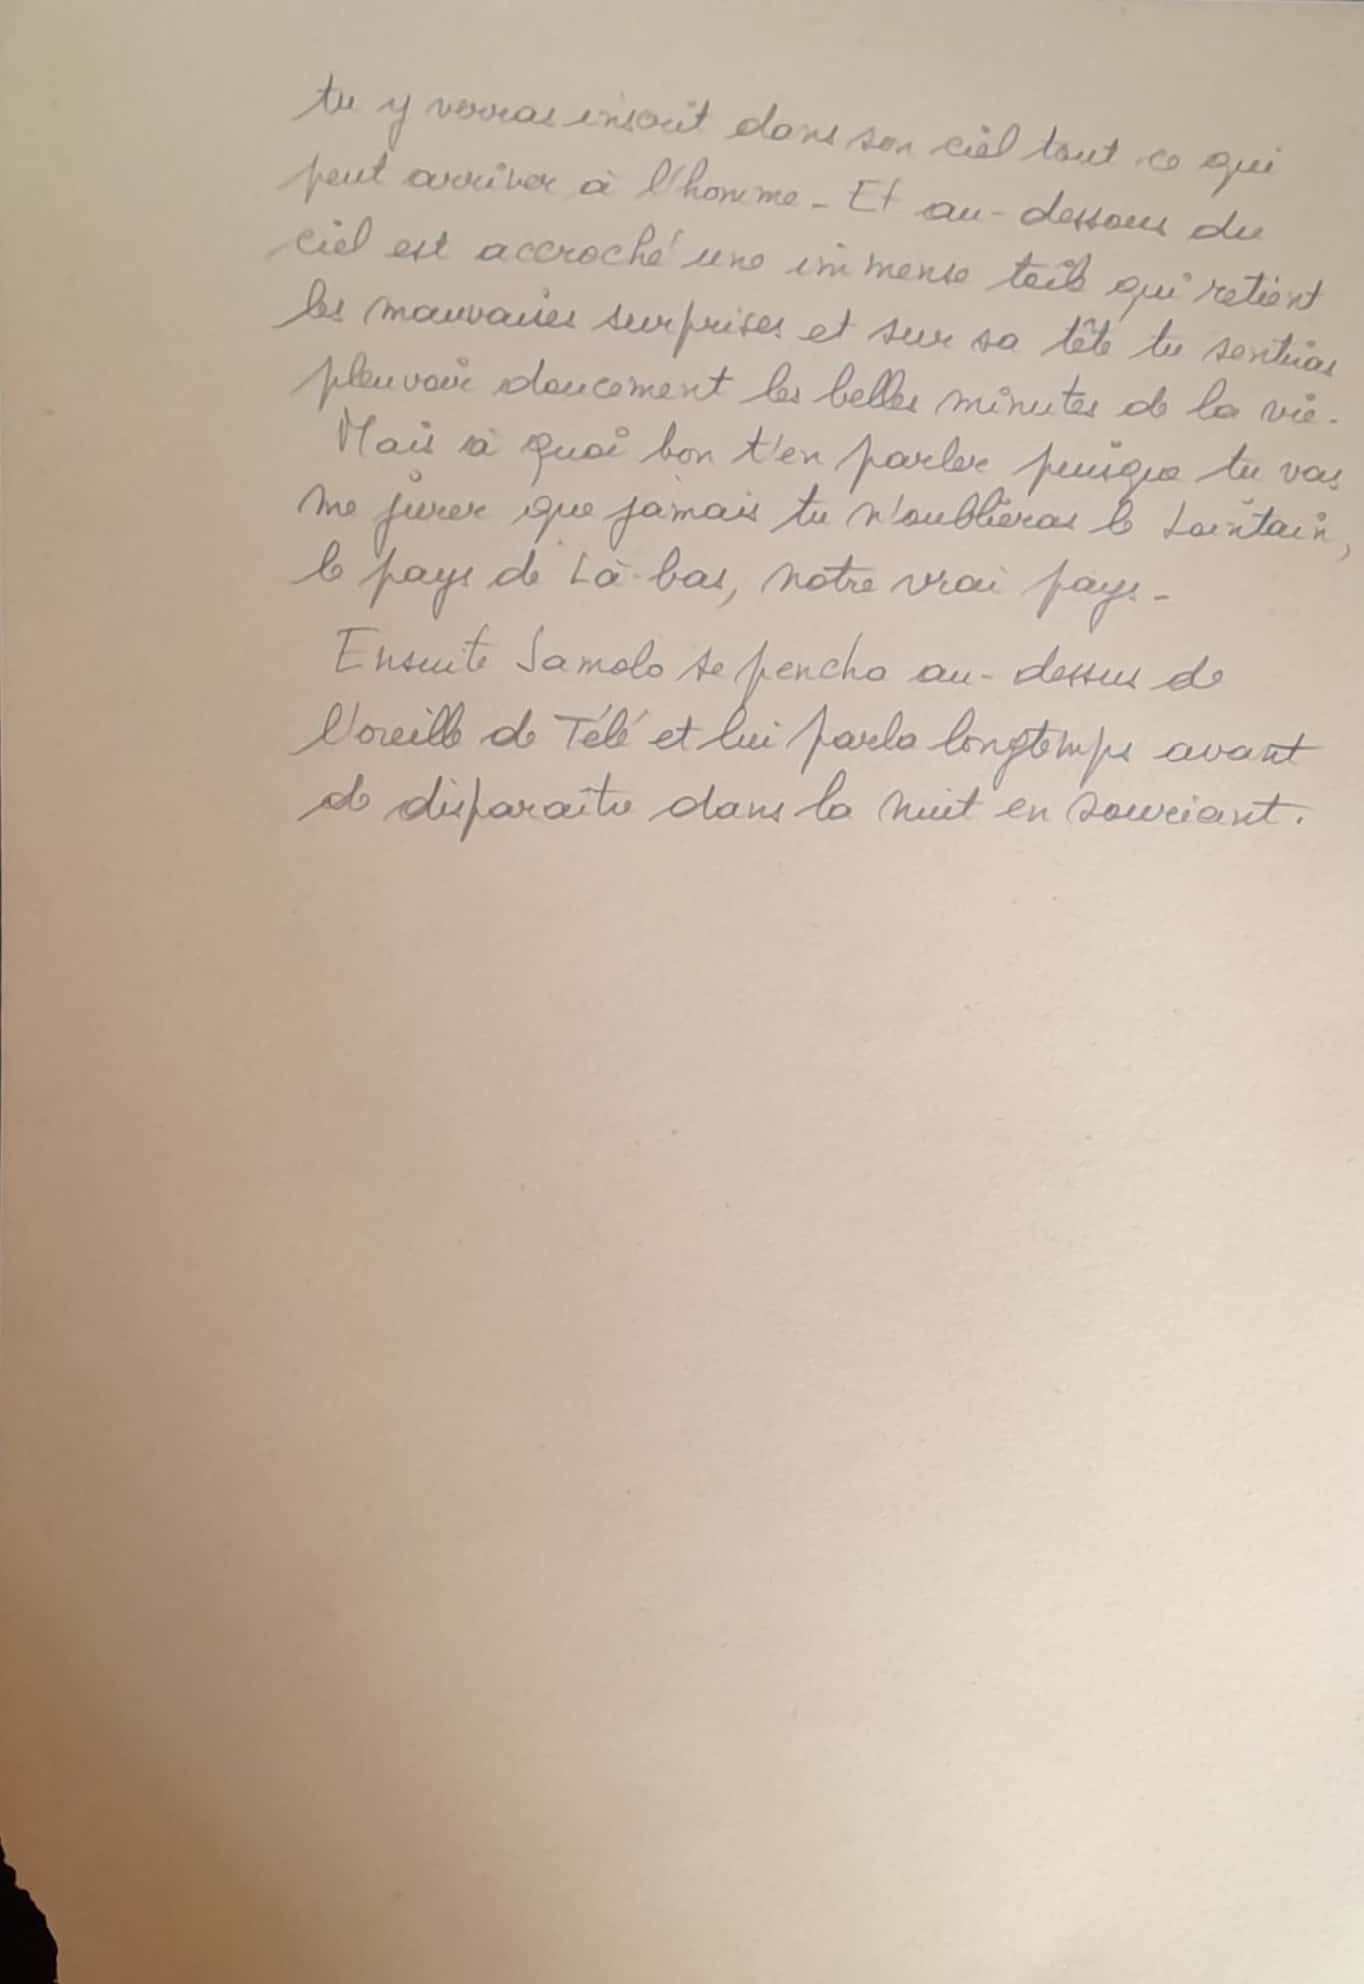 tu y verras inscrit dans son ciel tout ce qui
peut arriver à l'homme - Et au-dessous du
ciel est accroché une immense toile qui retient
les mauvaises surprises et sur sa tête tu sentiras
pleuvoir doucement les belles minutes de la vie.
Mais à quoi bon t'en parler puisque tu vas
me jurer que jamais tu n'oublieras le Lointain,
le pays de Là-bas, notre vrai pays -
Ensuite Samolo se pencha au-dessus de
l'oreille de Télé et lui parla longtemps avant
de disparaître dans la nuit en souriant.